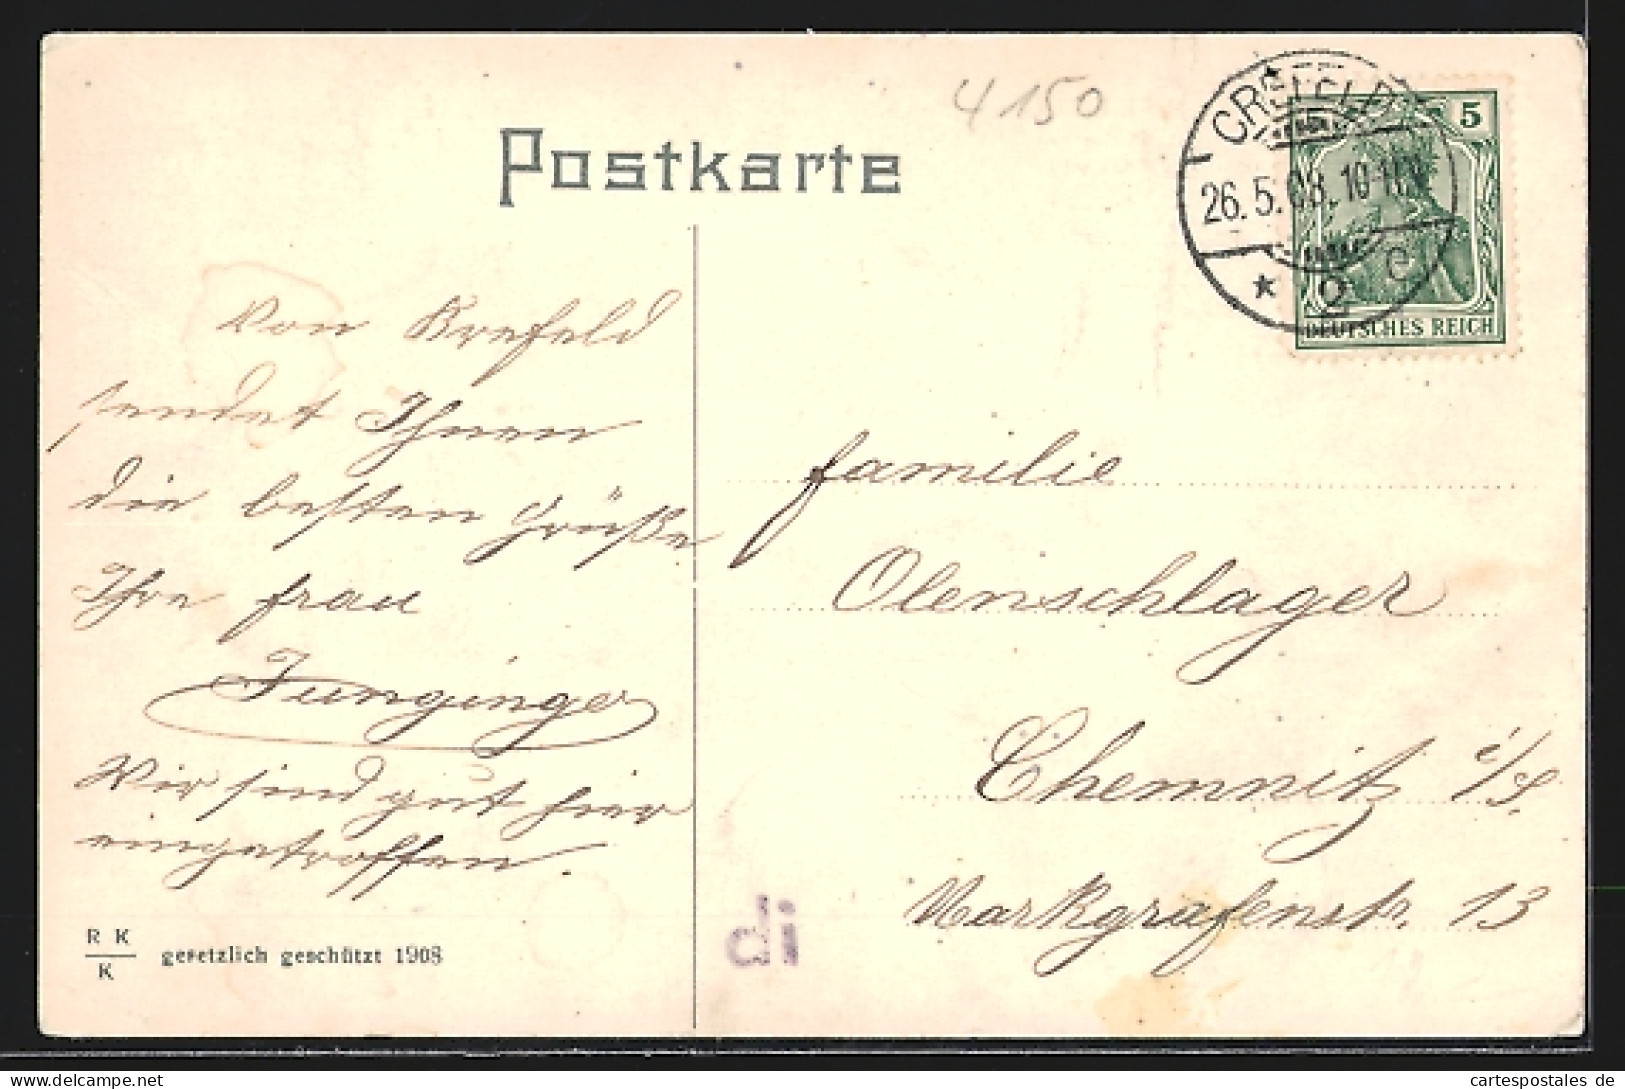 4150
Postkarte
CREFELD
26.5.08.10-11V
* 2 e
5
DEUTSCHES REICH
Von Krefeld
sendet Ihnen
die besten Grüße
Ihre Frau
Junginger
Wir sind gut hier
eingetroffen.
R K
K
gesetzlich geschützt 1908
di
Familie
Olenschlager
Chemnitz i/S.
Markgrafenstr. 13
cartespostales de